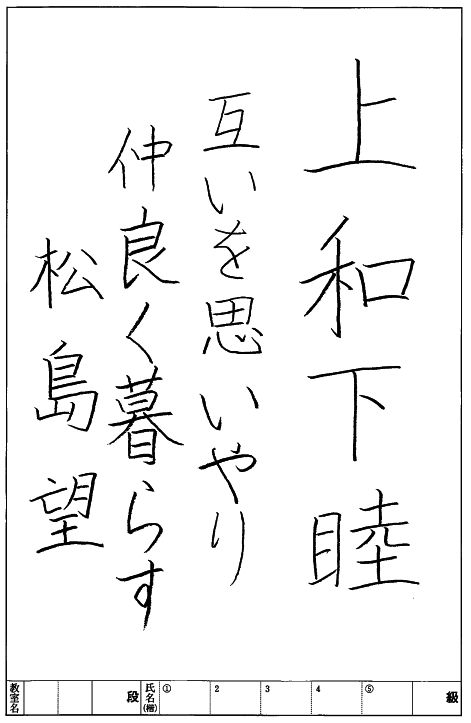 上和下睦
互いを思いやり
仲良く暮らす
松島望
教室名 段 氏名(楷) ① 2 3 4 ⑤ 級